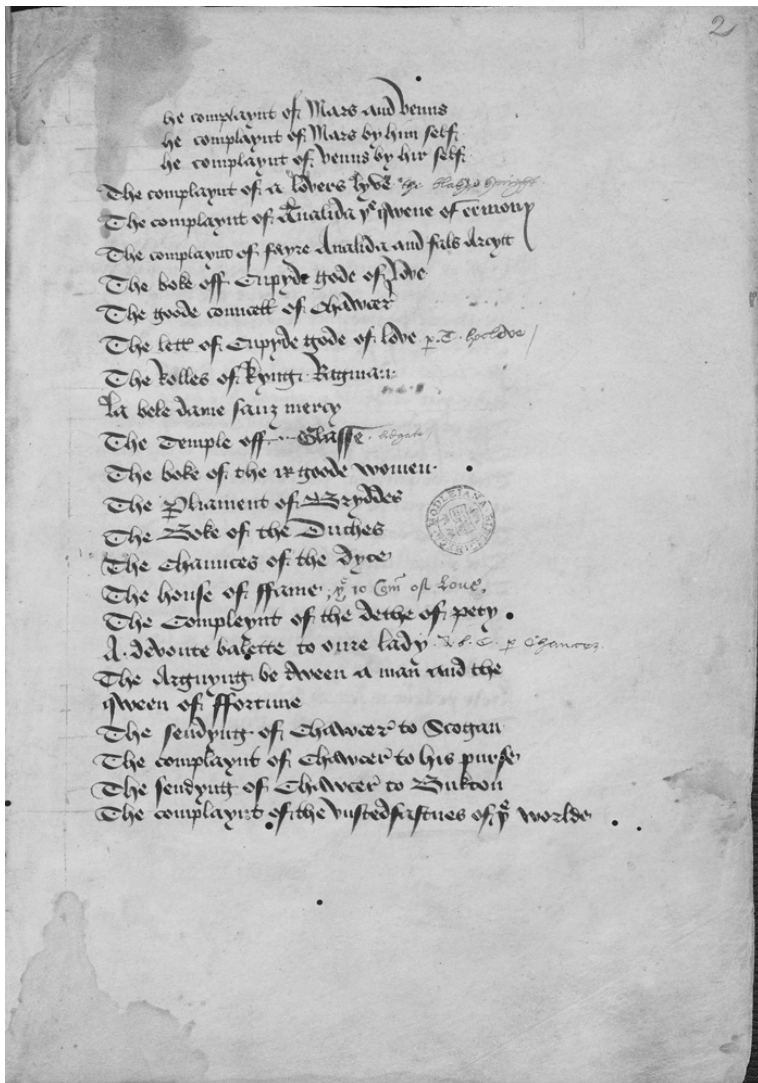 2
he complaynt of Mars and venus
he complaynt of Mars by him self
he complaynt of venus by hir self
The complaynt of a lovers lyve the blak knight
The complaynt of Analida yͤ qwene of ermony
The complaynt of fayre Analida and fals Arcytt
The boke off Cupyde gode of love
The goode councell of Chawcer
The lett of Cupyde gode of love p. T. hocleve
The Rolles of kyng Ragman
la bele dame sanz mercy
The Temple off Glasse lidgate
The boke of the ix goode women
The pliament of Bryddes
The Boke of the Duches
The Chaunces of the dyce
The house of ffame
The Compleynt of the dethe of pety
A devoute balette to oure lady A. b. C. p Chaucer
The Arguyng be tween a man and the
qween of ffortune
The sendyng of Chawcer to Scogan
The complaynt of Chawcer to his purse
The sendyng of Chawcer to Bukton
The complaynt of the vnstedfastnes of yͤ worlde
BODLEIANA